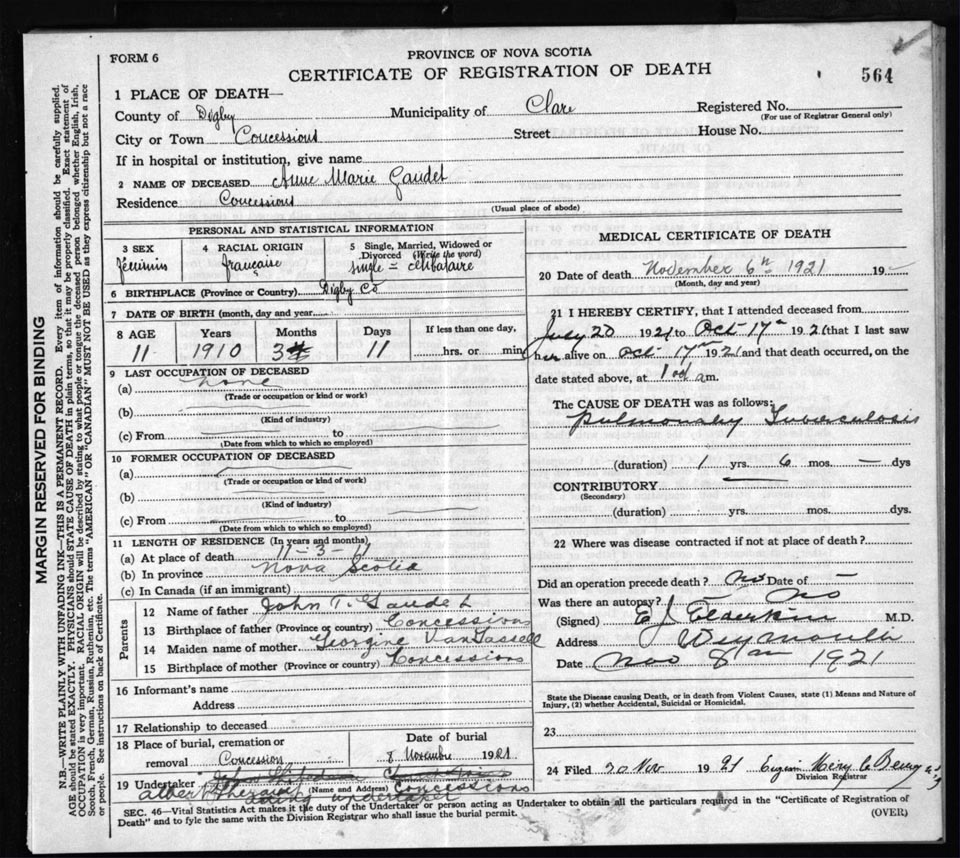 FORM 6
PROVINCE OF NOVA SCOTIA
CERTIFICATE OF REGISTRATION OF DEATH
564
1 PLACE OF DEATH—
County of Digby Municipality of Clare Registered No.
(For use of Registrar General only)
City or Town Concessions Street House No.
If in hospital or institution, give name
2 NAME OF DECEASED Anne Marie Gaudet
Residence Concessions
(Usual place of abode)
PERSONAL AND STATISTICAL INFORMATION
3 SEX
Féminin
4 RACIAL ORIGIN
française
5 Single, Married, Widowed or Divorced (Write the word)
single = célibataire
6 BIRTHPLACE (Province or Country) Digby Co
7 DATE OF BIRTH (month, day and year
8 AGE Years Months Days If less than one day,
11 1910 3 11 hrs. or min
9 LAST OCCUPATION OF DECEASED
(a) none
(Trade or occupation or kind or work)
(b)
(Kind of industry)
(c) From to
(Date from which to which so employed)
10 FORMER OCCUPATION OF DECEASED
(a)
(Trade or occupation or kind of work)
(b)
(Kind of industry)
(c) From to
(Date from which to which so employed)
11 LENGTH OF RESIDENCE (In years and months)
(a) At place of death 11-3-11
(b) In province Nova Scotia
(c) In Canada (if an immigrant)
Parents
12 Name of father John T. Gaudet
13 Birthplace of father (Province or country) Concessions
14 Maiden name of mother Georgine VanTassell
15 Birthplace of mother (Province or country) Concessions
16 Informant's name
Address
17 Relationship to deceased
18 Place of burial, cremation or removal Concession
Date of burial
8 Novembre 1921
19 Undertaker
(Name and Address) Concessions
acting undertaker
MEDICAL CERTIFICATE OF DEATH
20 Date of death November 6th 1921 19
(Month, day and year)
21 I HEREBY CERTIFY, that I attended deceased from
July 20 1921 to Oct 17th 1921 that I last saw
her alive on Oct 17th 1921 and that death occurred, on the
date stated above, at 1 am.
The CAUSE OF DEATH was as follows:
Pulmonary Tuberculosis
(duration) 1 yrs. 6 mos. — dys
CONTRIBUTORY
(Secondary)
(duration) yrs. mos. dys.
22 Where was disease contracted if not at place of death?
Did an operation precede death? no Date of —
Was there an autopsy? no
(Signed) E J Elderkin M.D.
Address Weymouth
Date Nov 8th 1921
State the Disease causing Death, or in death from Violent Causes, state (1) Means and Nature of
Injury, (2) whether Accidental, Suicidal or Homicidal.
23
24 Filed 20 Nov 1921
Division Registrar
SEC. 46—Vital Statistics Act makes it the duty of the Undertaker or person acting as Undertaker to obtain all the particulars required in the "Certificate of Registration of
Death" and to fyle the same with the Division Registrar who shall issue the burial permit.
(OVER)
MARGIN RESERVED FOR BINDING
N.B.—WRITE PLAINLY WITH UNFADING INK—THIS IS A PERMANENT RECORD. Every item of information should be carefully supplied.
AGE should be stated EXACTLY. PHYSICIANS should STATE CAUSE OF DEATH in plain terms, so that it may be properly classified. Exact statement of
OCCUPATION is very important. RACIAL ORIGIN will be described by stating to what people or tongue the deceased person belonged whether English, Irish,
Scotch, French, German, Russian, Ruthenian, etc. The terms "AMERICAN" OR "CANADIAN" MUST NOT BE USED as they express citizenship but not a race
or people. See instructions on back of Certificate.